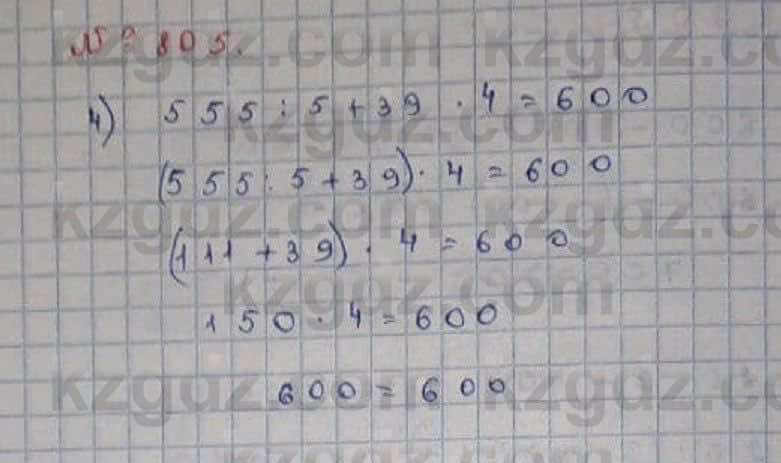 № 805.
4) 555 : 5 + 39 · 4 = 600
(555 : 5 + 39) · 4 = 600
(111 + 39) · 4 = 600
150 · 4 = 600
600 = 600
kzgdz.com kzgdz.com
kzgdz.com
kzgdz.com kzgdz.com
kzgdz.com
kzgdz.com kzgdz.com